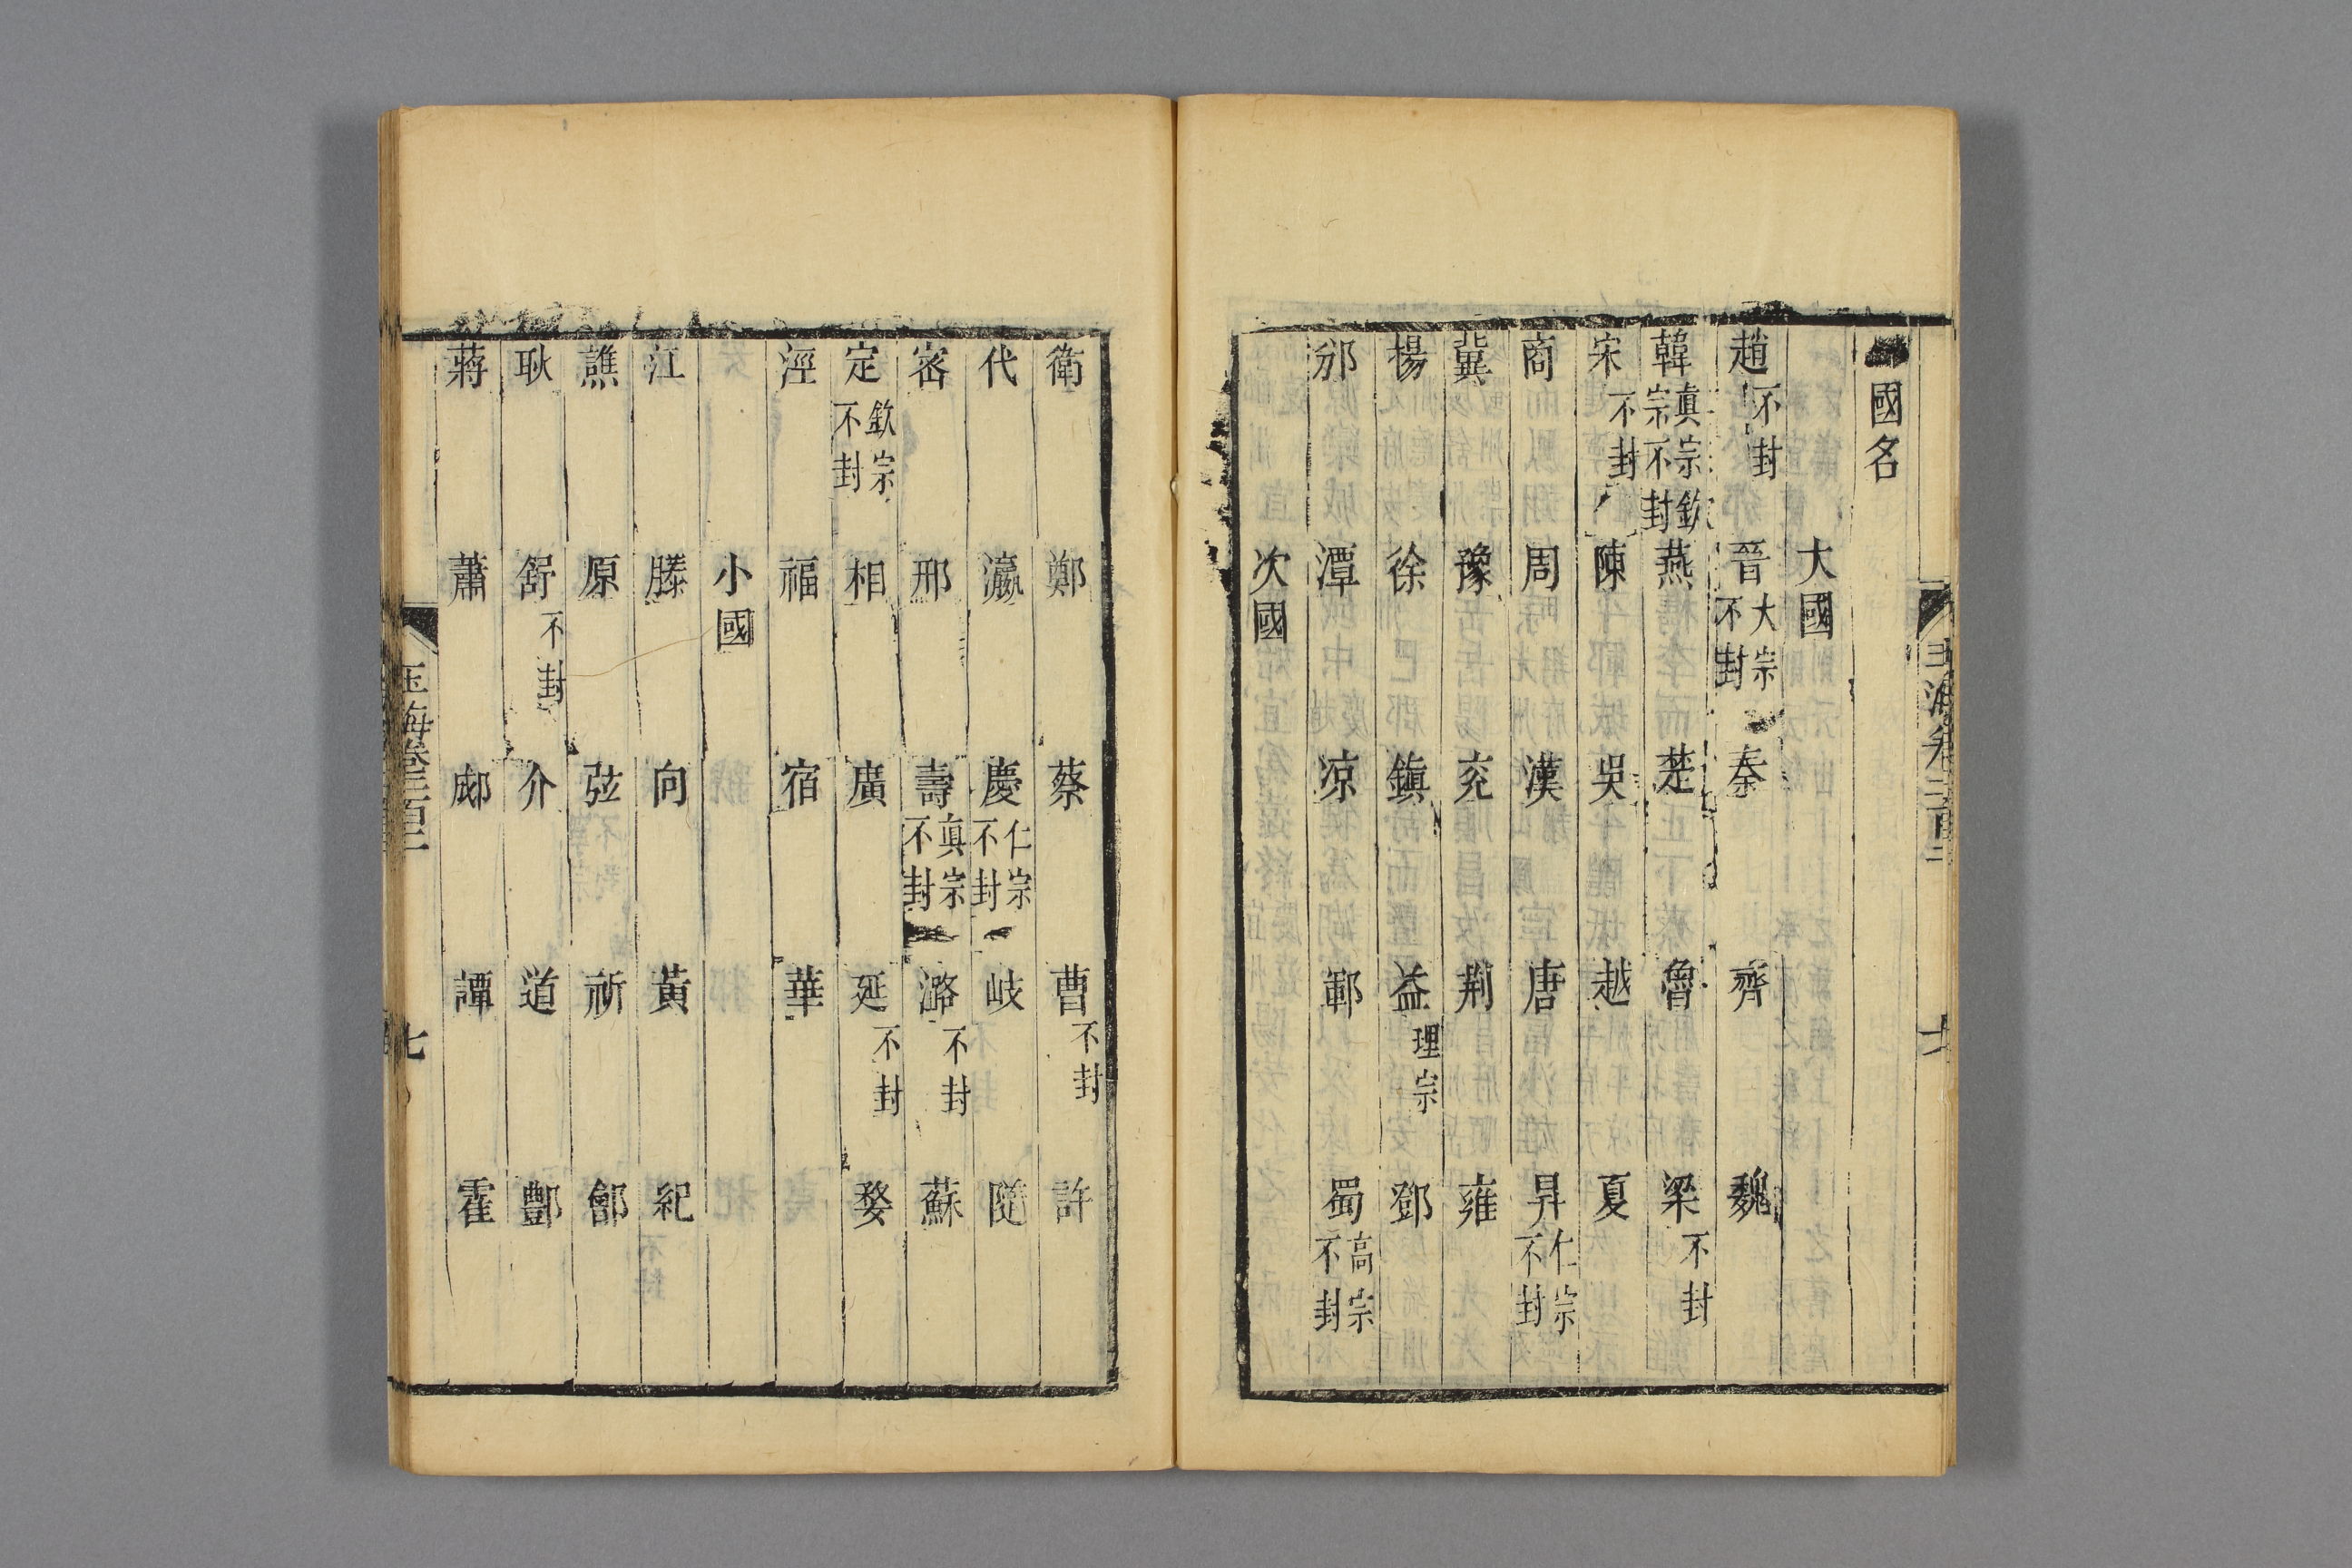 國名
大國
趙不封 晉太宗不封 秦 齊 魏
韓真宗欽宗不封 燕 楚 魯 梁不封
宋不封 陳 吳 越 夏
商 周 漢 唐 昇仁宗不封
冀 豫 兖 荆 雍
揚 徐 鎮 益理宗 鄧
邠 潭 凉 鄆 蜀高宗不封
次國
衛 鄭 蔡 曹不封 許
代 瀛 慶仁宗不封 岐 隨
密 邢 壽真宗不封 潞不封 蘇
定欽宗不封 相 廣 延不封 婺
涇 福 宿 華
小國
江 滕 向 黃 紀
譙 原 弦 祈 鄫
耿 舒不封 介 道 酆
蔣 蕭 郕 譚 霍
玉海卷二百二
七